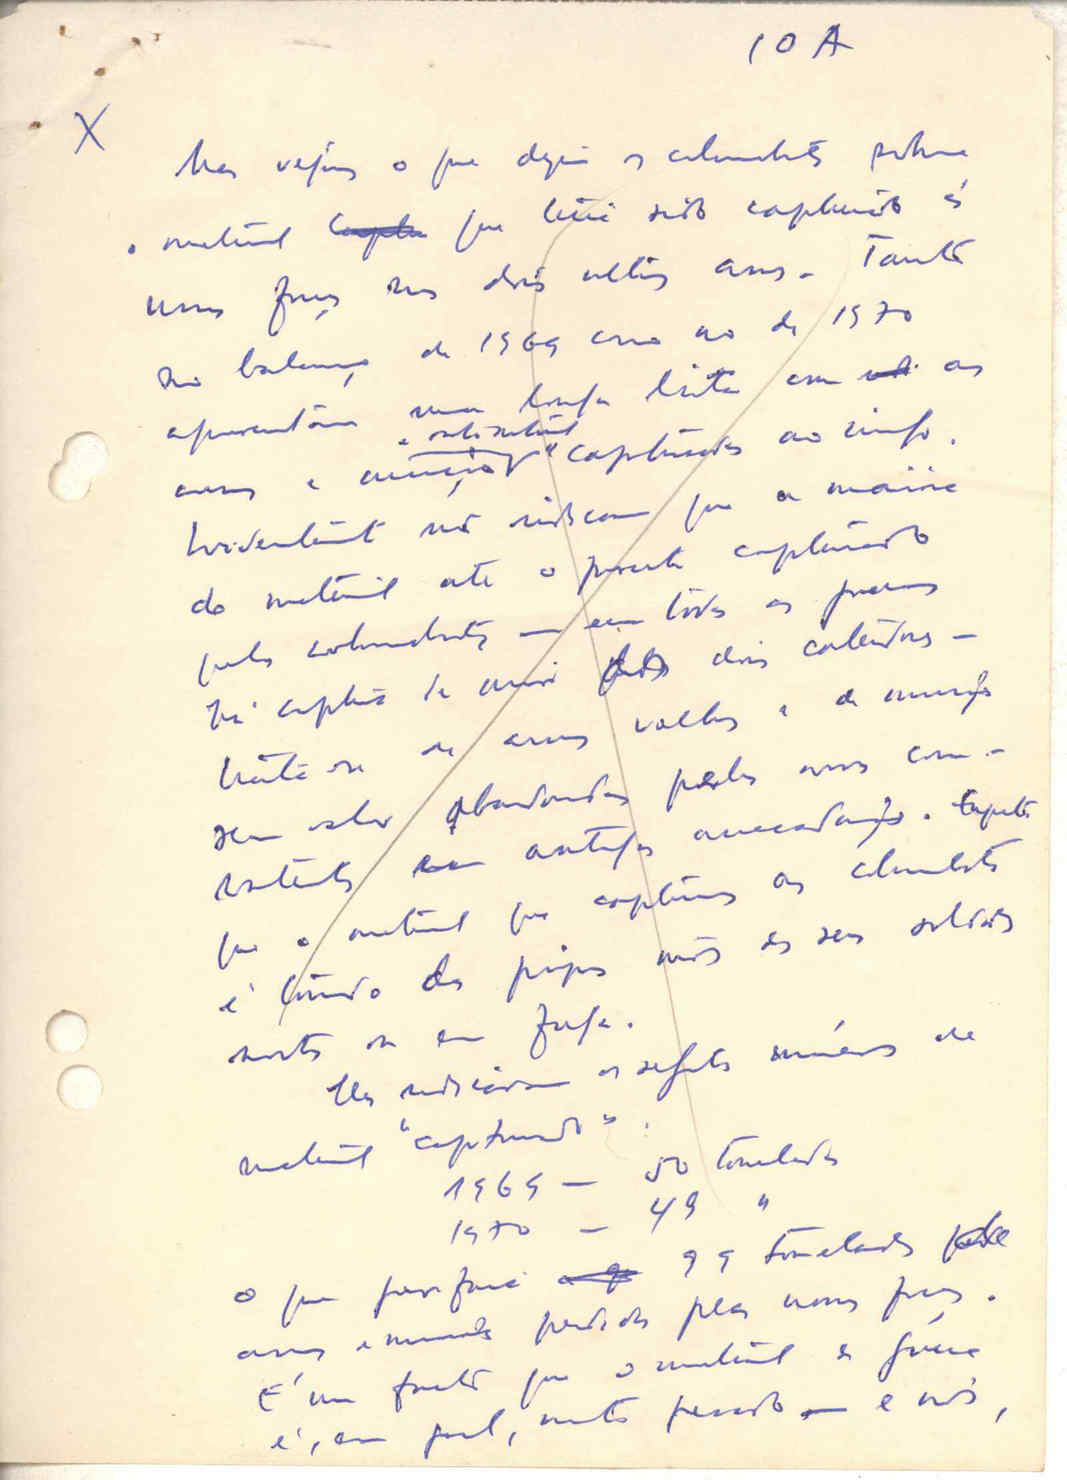 10 A
X
Mas vejamos o que dizem os colonialistas sobre
o material que teria sido capturado às
nossas forças nos dois últimos anos. Tanto
no balanço de 1969 como no de 1970
apresentam uma longa lista com as
armas e munições e outro material "capturados ao inimigo.
Evidentemente não indicam que a maioria
do material até o presente capturado
pelos colonialistas — em todas as guerras
há captura de armas pelos dois contendores —
trata-se de armas velhas e de munições
sem valor abandonadas pelos nossos com-
batentes em antigas arrecadações.
que o material que capturam os colonialistas
é tirado das próprias mãos dos seus soldados
mortos ou em fuga.
Eles indicaram os seguintes números de
material "capturado":
1969 — 50 toneladas
1970 — 49 "
O que perfaz 99 toneladas de
armas e munições perdidas pelas nossas forças.
É um facto que o material de guerra
é, em geral, muito pesado — e nós,